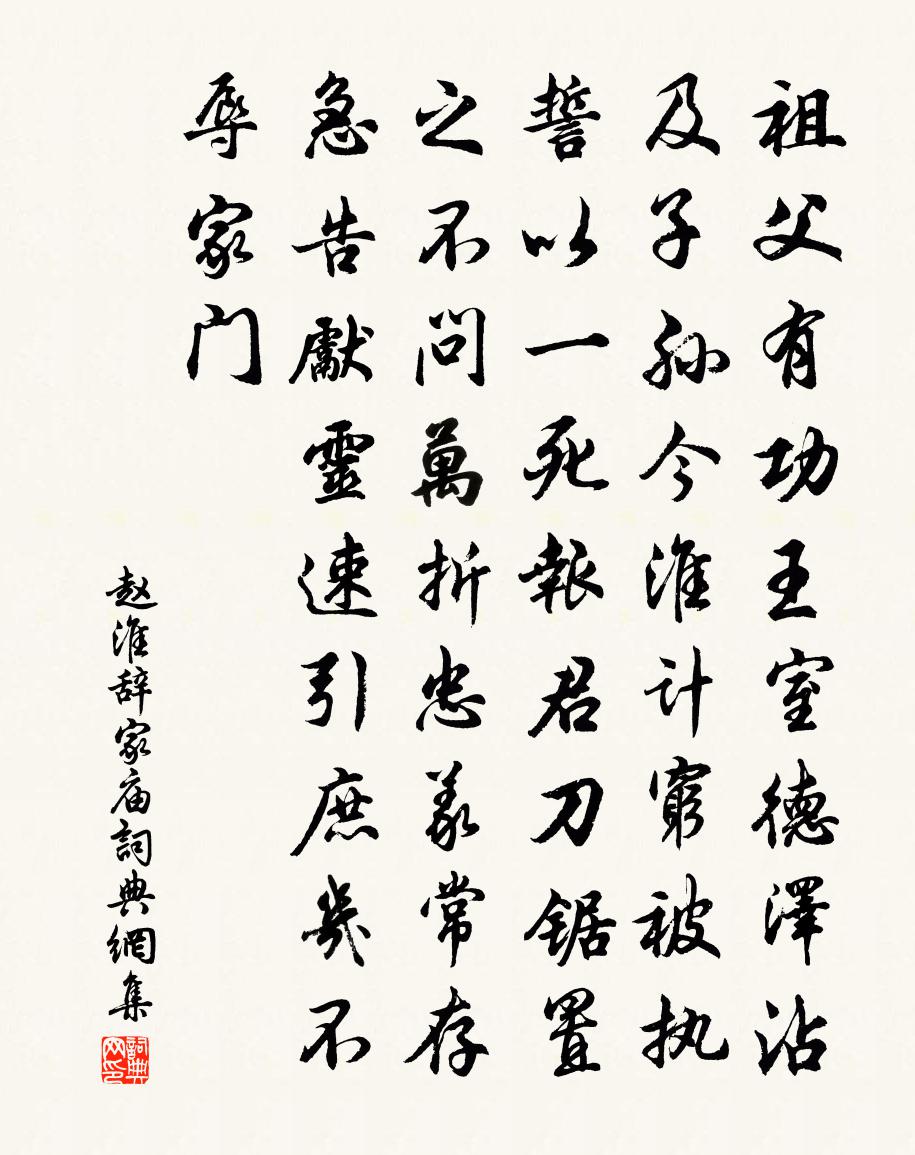 祖父有功王室德澤沾
及子孫今淮计窮被执
誓以一死報君刀锯置
之不問萬折忠義常存
急告獻靈速引庶幾不
辱家门
赵淮辞家庙詞典網集
詞典网印